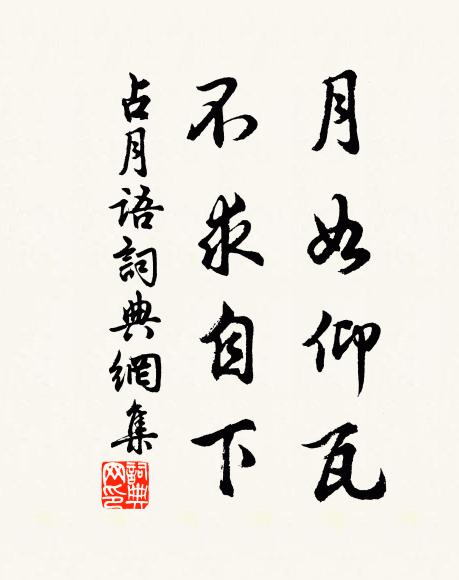 月如仰瓦
不求自下
占月语詞典網集
詞典网印